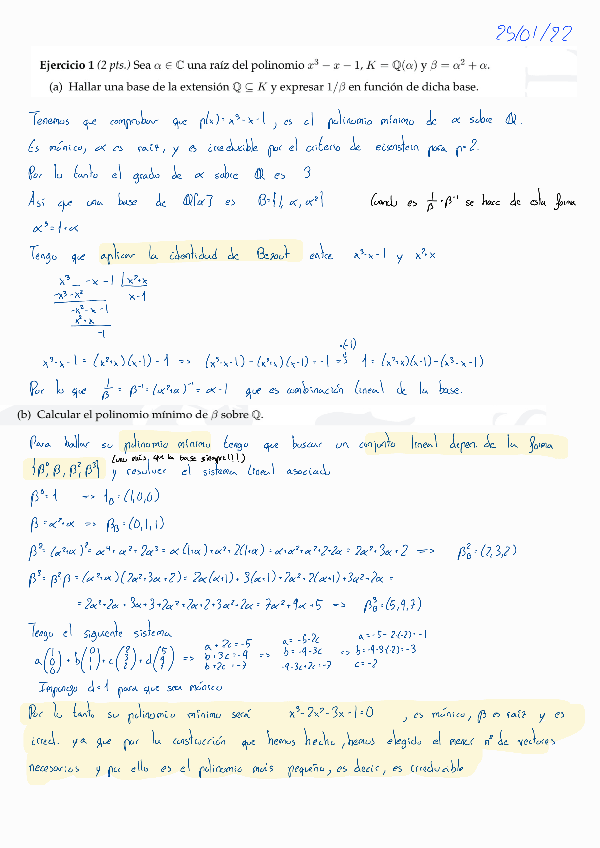 25/01/22
Ejercicio 1 (2 pts.) Sea α ∈ ℂ una raíz del polinomio x³ − x − 1, K = ℚ(α) y β = α² + α.
(a) Hallar una base de la extensión ℚ ⊆ K y expresar 1/β en función de dicha base.
Tenemos que comprobar que p(x) = x³-x-1, es el polinomio mínimo de α sobre ℚ.
Es mónico, α es raíz, y es irreducible por el criterio de eisenstein para p=2.
Por lo tanto el grado de α sobre ℚ es 3
Así que una base de ℚ[α] es B={1, α, α²} Cuando es 1/β = β⁻¹ se hace de esta forma
α³ = 1+α
Tengo que aplicar la identidad de Bezout entre x³-x-1 y x²+x
x³ -x -1 | x²+x
-x³ -x² x-1
-x² -x -1
x² + x
-1
·(-1)
x³-x-1 = (x²+x)(x-1) - 1 => (x³-x-1) - (x²+x)(x-1) = -1 => 1 = (x²+x)(x-1) - (x³-x-1)
Por lo que 1/β = β⁻¹ = (α²+α)⁻¹ = α-1 que es combinación lineal de la base.
(b) Calcular el polinomio mínimo de β sobre ℚ.
Para hallar su polinomio mínimo tengo que buscar un conjunto lineal depen. de la forma
(uno más, que la base siempre!!!)
{β⁰, β, β², β³} y resolver el sistema lineal asociado
β⁰ = 1 => 1_B = (1,0,0)
β = α²+α => β_B = (0,1,1)
β² = (α²+α)² = α⁴ + α² + 2α³ = α(1+α) + α² + 2(1+α) = α+α²+α²+2+2α = 2α²+3α+2 => β²_B = (2,3,2)
β³ = β²β = (α²+α)(2α²+3α+2) = 2α(α+1) + 3(α+1) + 2α² + 2(α+1) + 3α² + 2α =
= 2α²+2α + 3α+3 + 2α² + 2α + 2 + 3α² + 2α = 7α² + 9α + 5 => β³_B = (5,9,7)
Tengo el siguiente sistema
a(1 0 0) + b(0 1 1) + c(2 3 2) + d(5 9 7) => a+2c=-5 => a=-5-2c => a=-5-2(-2)=-1
b+3c=-9 b=-9-3c b=-9-3(-2)=-3
b+2c=-7 -9-3c+2c=-7 c=-2
Impongo d=1 para que sea mónico
Por lo tanto su polinomio mínimo será x³-2x²-3x-1=0 , es mónico, β es raíz y es
irred. ya que por la construcción que hemos hecho, hemos elegido el menor nº de vectores
necesarios y por ello es el polinomio más pequeño, es decir, es irreducible